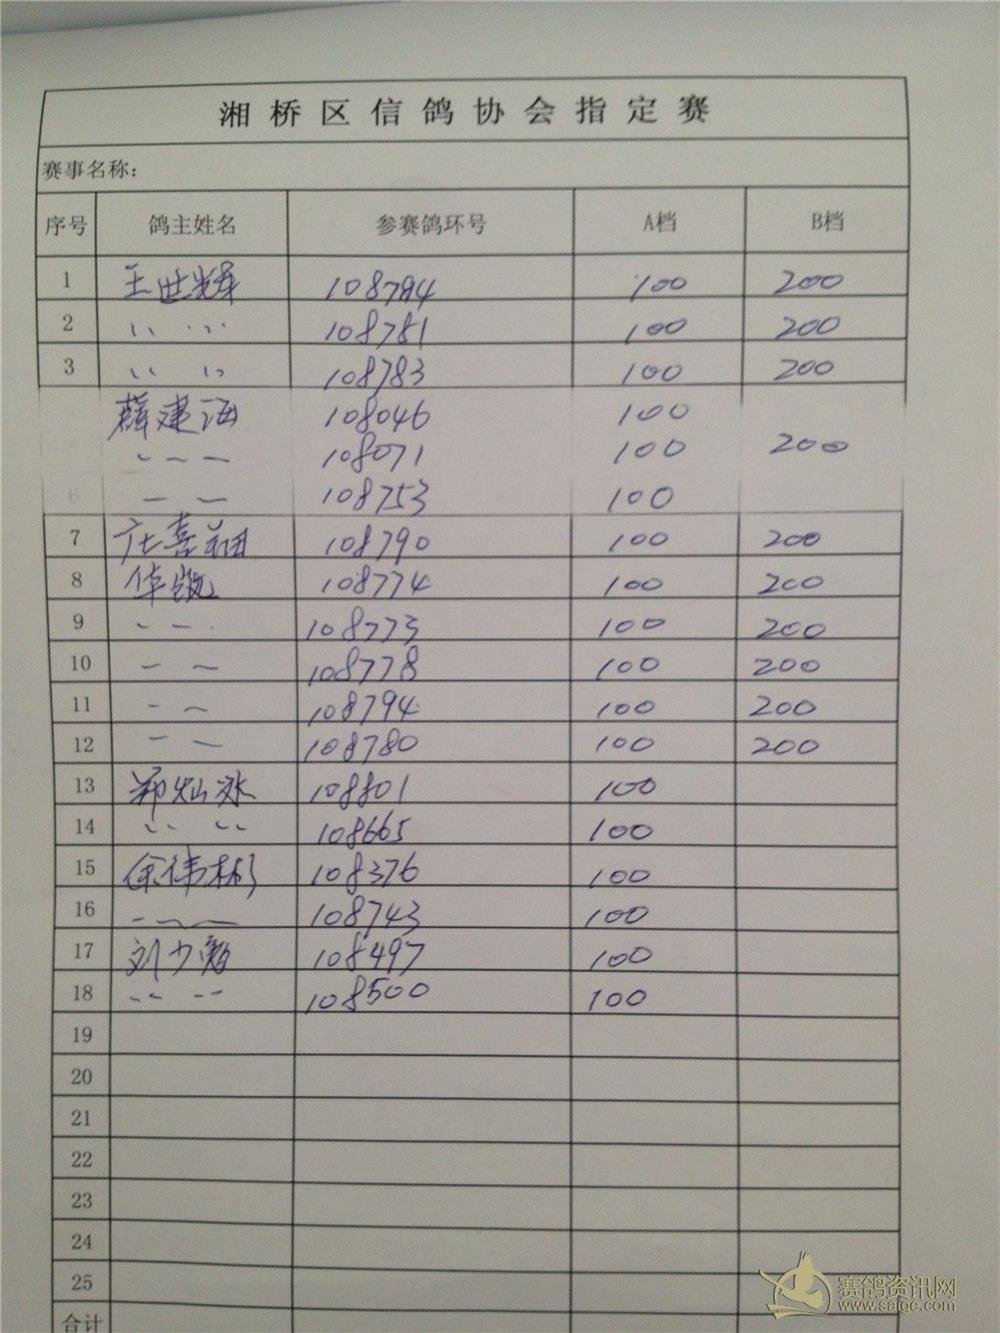 湘桥区信鸽协会指定赛
赛事名称：
序号 鸽主姓名 参赛鸽环号 A档 B档
1 王世辉 108784 100 200
2 〃 〃 108781 100 200
3 〃 〃 108783 100 200
建海 108046 100
〃 〃 〃 108071 100 200
6 〃 〃 108753 100
7 庄喜 108790 100 200
8 华凯 108774 100 200
9 〃 〃 108773 100 200
10 〃 〃 108778 100 200
11 〃 〃 108794 100 200
12 〃 〃 108780 100 200
13 郑灿冰 108801 100
14 〃 〃 108665 100
15 余伟彬 108376 100
16 〃 〃 〃 108743 100
17 刘少 108497 100
18 〃 〃 108500 100
19
20
21
22
23
24
25
合计
赛鸽资讯网
www.saige.com